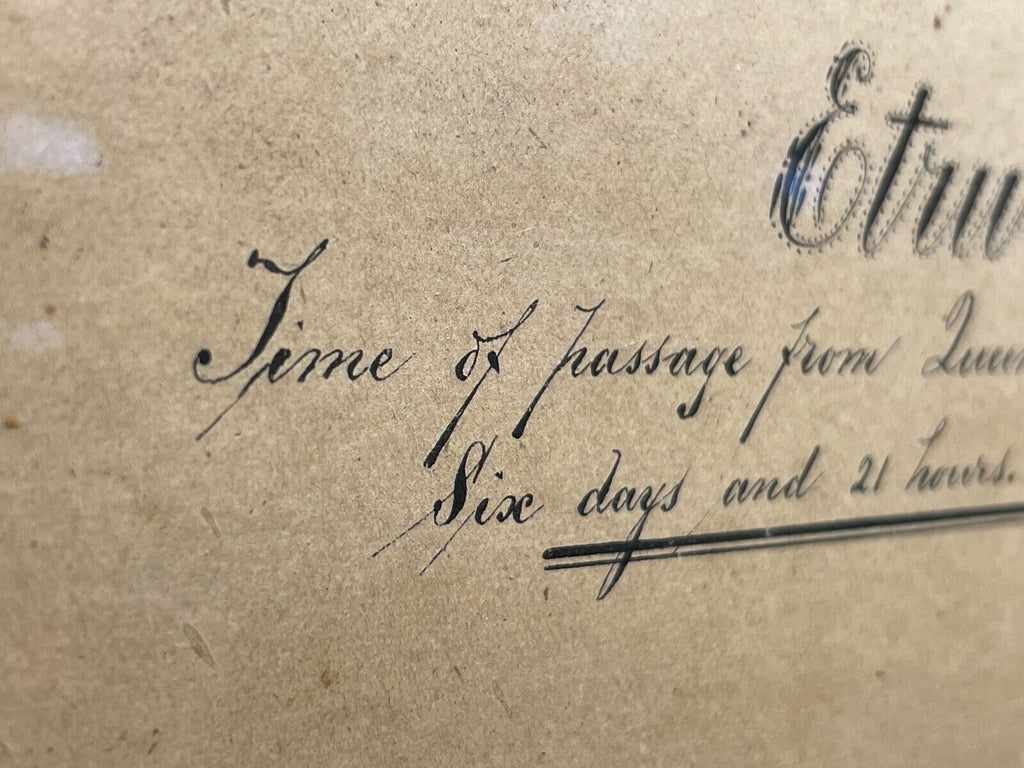 Etru
Time of passage from Queen
Six days and 21 hours.